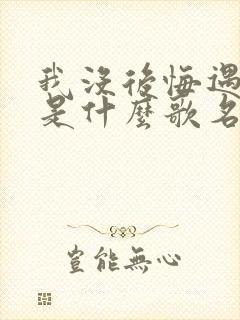 我没後悔遇
是什麼歌名
豈能無心